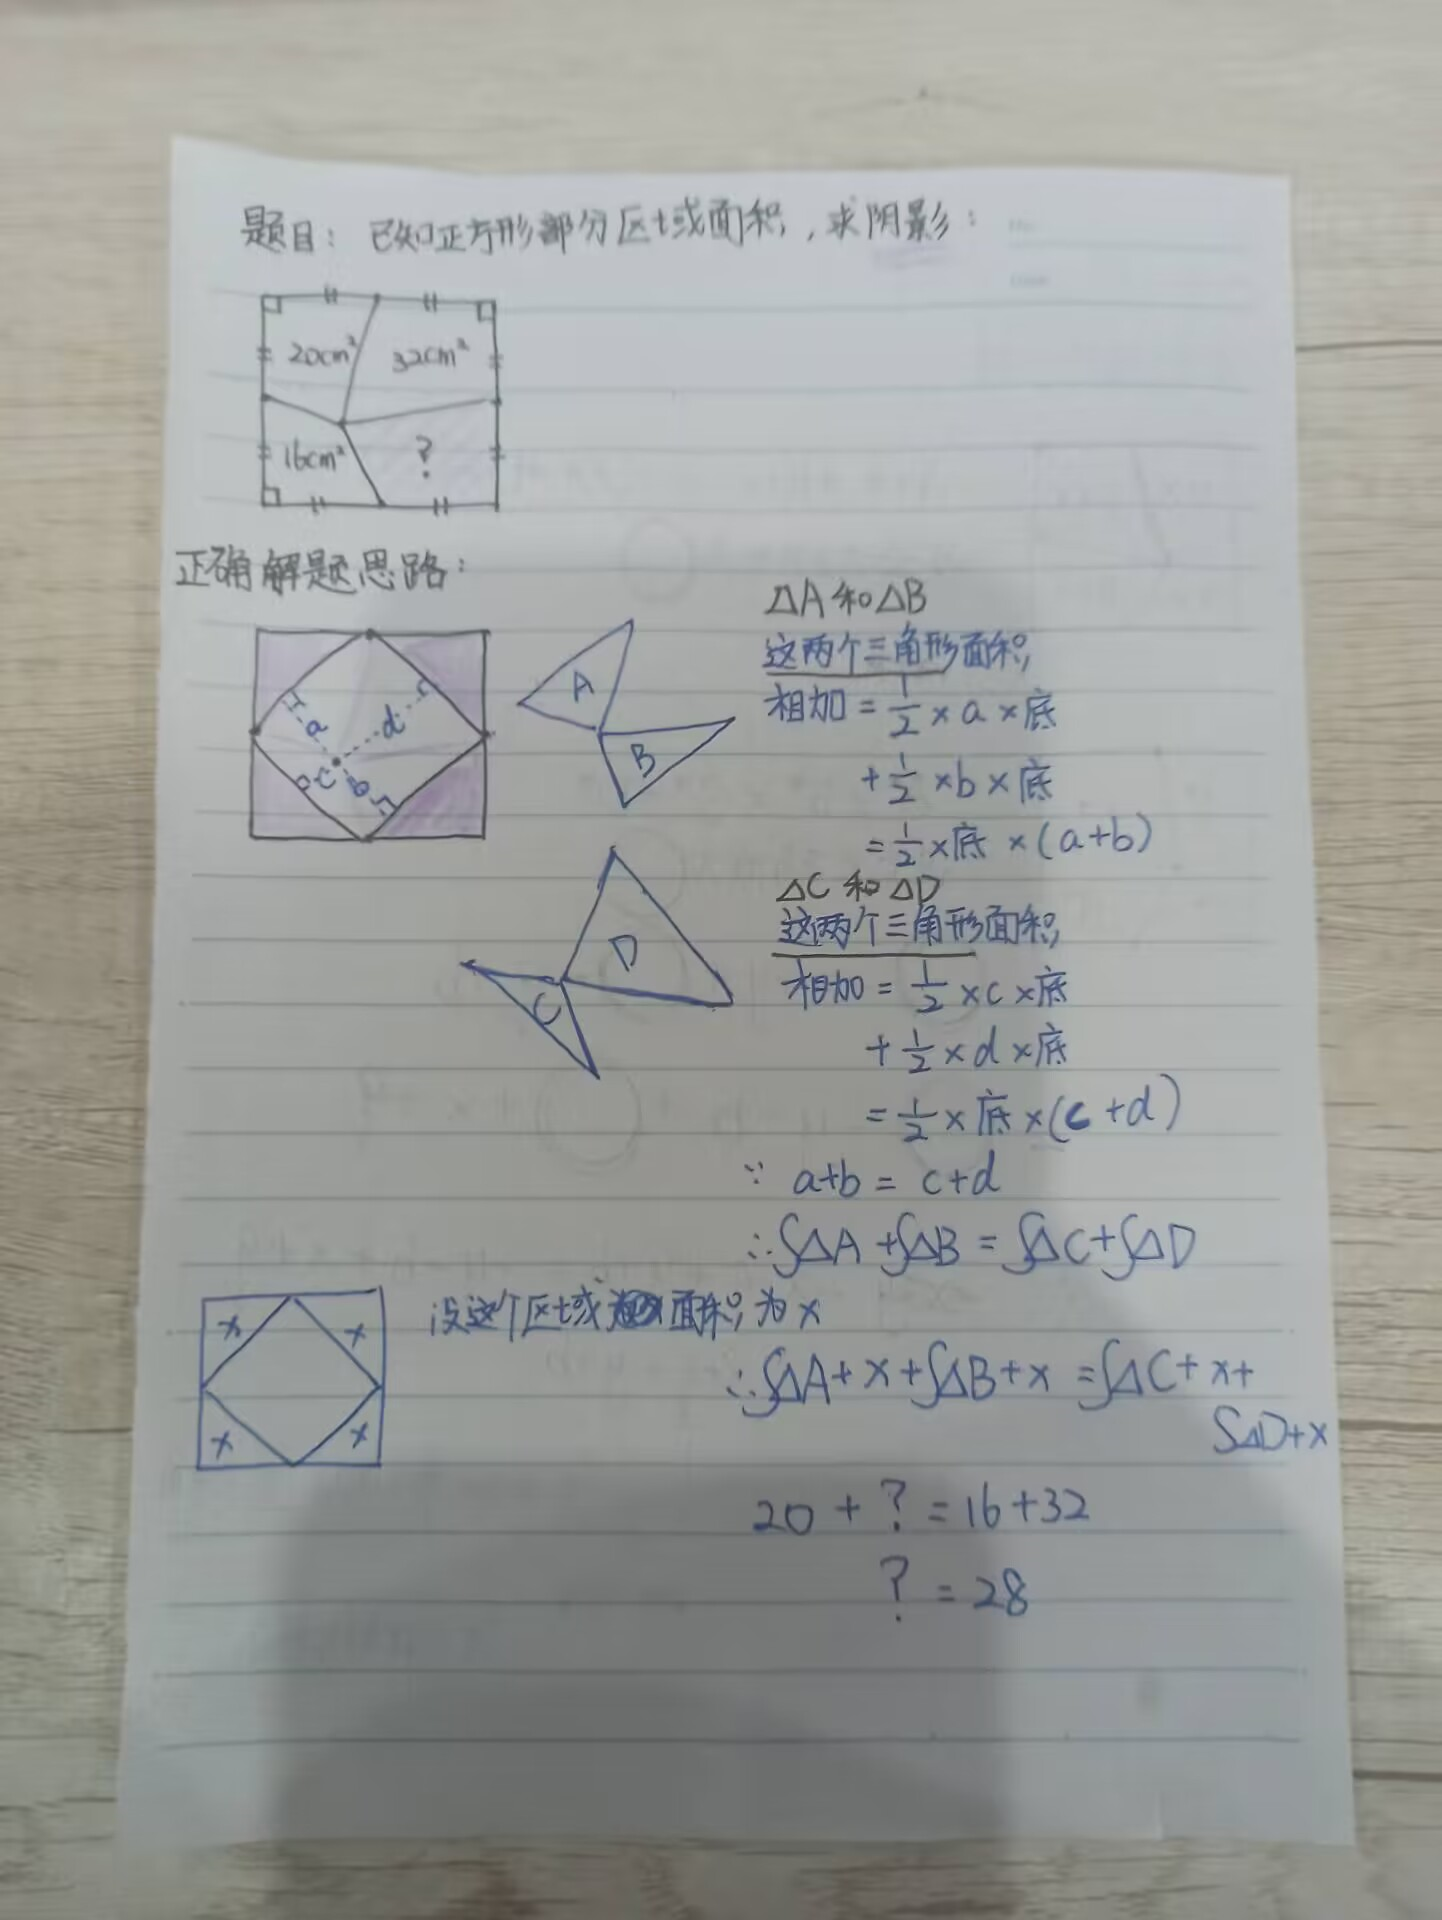 题目：已知正方形部分区域面积，求阴影：
20cm² 32cm²
16cm² ?
正确解题思路：
a d
c b
A
B
△A和△B
这两个三角形面积
相加=1/2×a×底
+1/2×b×底
=1/2×底×(a+b)
D
C
△C和△D
这两个三角形面积
相加=1/2×c×底
+1/2×d×底
=1/2×底×(c+d)
∵ a+b = c+d
∴S△A+S△B=S△C+S△D
x x
x x
设这个区域面积为x
∴S△A+x+S△B+x=S△C+x+
S△D+x
20+?=16+32
?=28